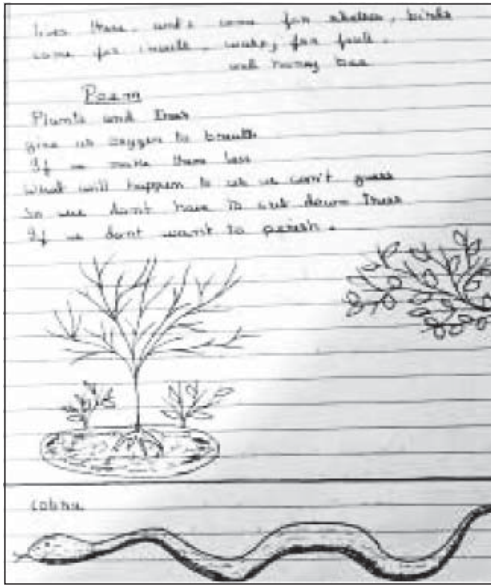 lives there, and come for shelter, birds
come for insects, for fruit.
and honey bee
Poem
Plants and trees
give us oxygen to breath
If we make them less
What will happen to us we can't guess
So we dont have to cut down trees
If we dont want to perish.
cobra